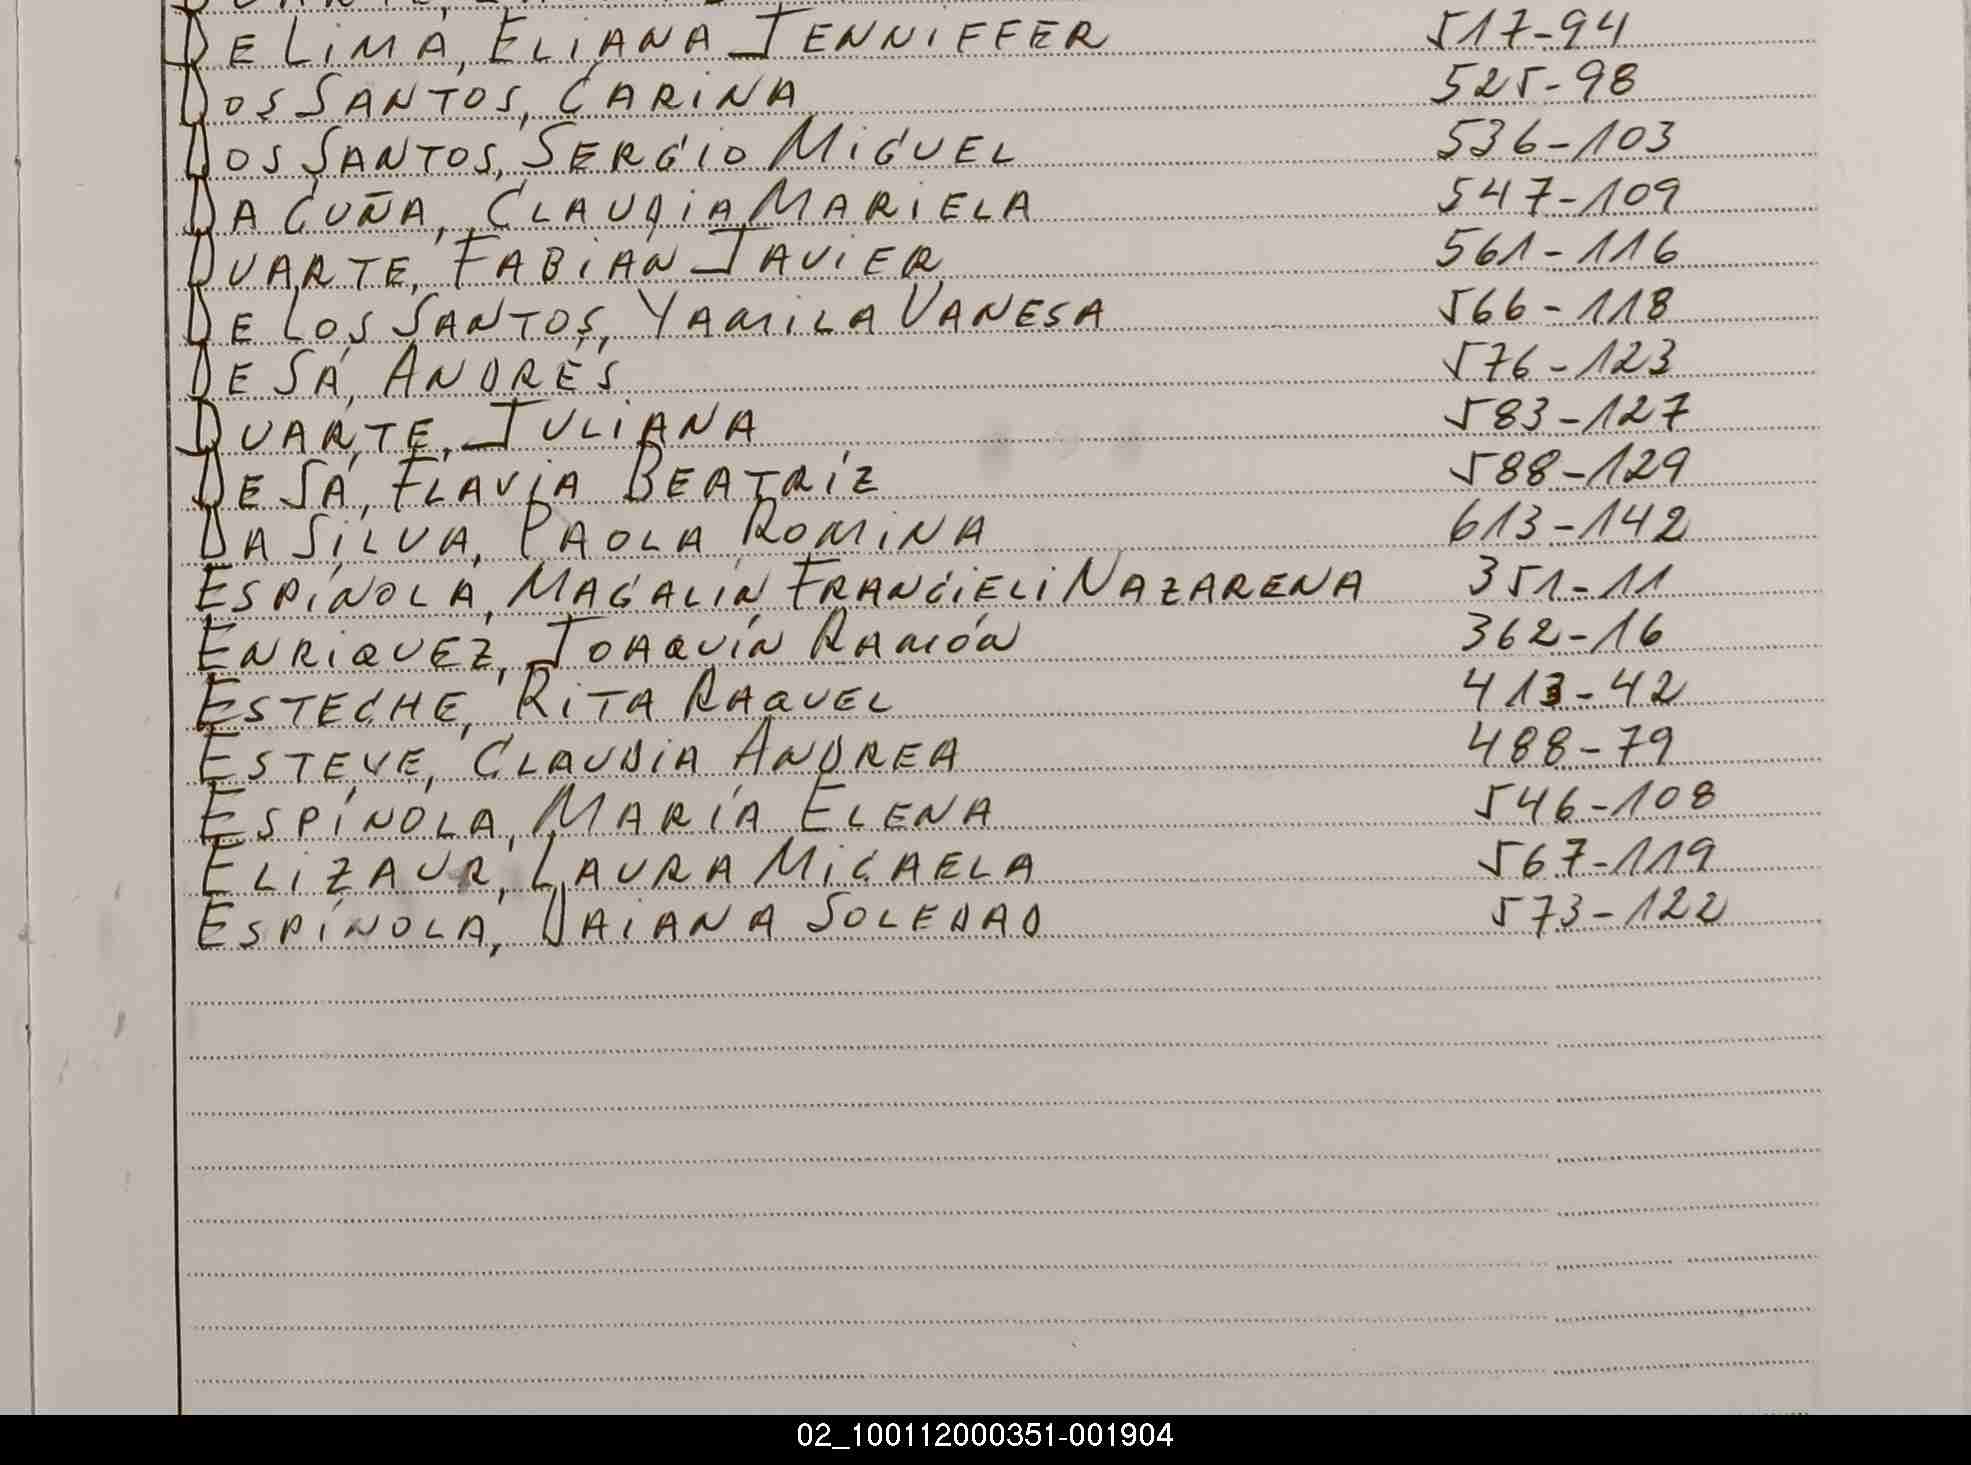 De Lima, Eliana Jenniffer 517-94
Dos Santos, Carina 525-98
Dos Santos, Sergio Miguel 536-103
Da Cuña, Claudia Mariela 547-109
Duarte, Fabian Javier 561-116
De Los Santos, Yamila Vanesa 566-118
De Sá, Andrés 576-123
Duarte, Juliana 583-127
De Sá, Flavia Beatríz 588-129
Da Silva, Paola Romina 613-142
Espínola, Magalín Francieli Nazarena 351-11
Enriquez, Joaquín Ramón 362-16
Esteche, Rita Raquel 413-42
Esteve, Claudia Andrea 488-79
Espínola, María Elena 546-108
Elizaur, Laura Micaela 567-119
Espínola, Daiana Soledad 573-122
02_100112000351-001904